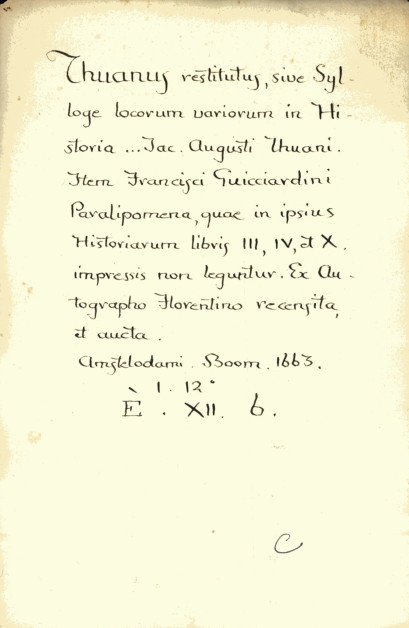 Thuanus restitutus, sive Syl-
loge locorum variorum in Hi-
storia ... Jac. Augusti Thuani.
Item Francisci Guicciardini
Paralipomena, quae in ipsius
Historiarum libris III, IV, et X.
impressis non leguntur. Ex Au-
tographo Florentino recensita,
et aucta.
Amstelodami. Boom. 1663.
1. 12°
È. XII. 6.
C